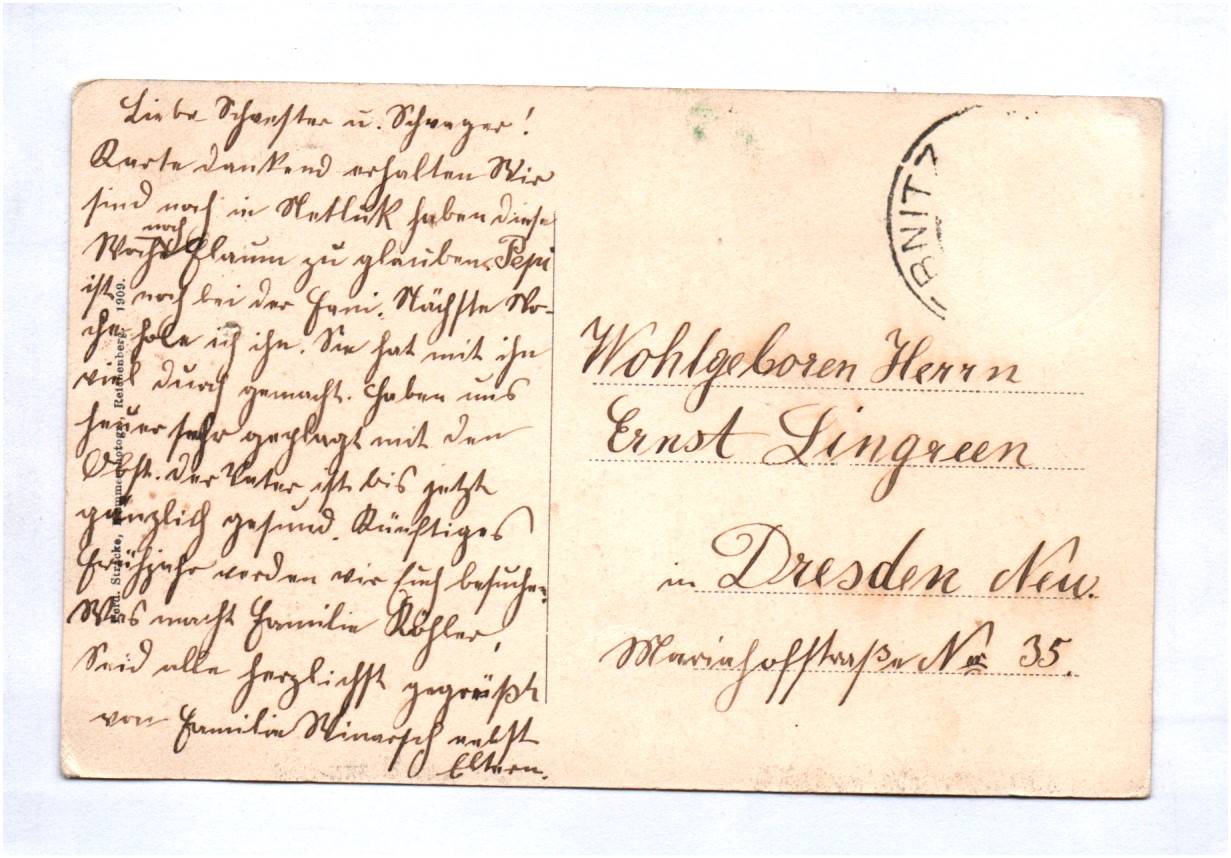 Liebe Schwester u. Schwager!
Karte dankend erhalten Wir
sind noch in Netluk haben diese
noch
Woche Flaum zu glauben. Pepi
ist noch bei der Fani. Nächste Wo-
che hole ich ihn. Sie hat mit ihn
viel durch gemacht. Haben uns
heuer sehr geplagt mit den
Obst. Der Vater ist bis jetzt
gänzlich gesund. Künftiges
Frühjahr werden wir Euch besuchen.
Was macht Familie Köhler,
Seid alle herzlichst gegrüßt
von Familie Winarsch nebst
Eltern.
Ferd. Stracke, Kammerphotogr., Reichenberg, 1909.
RNITZ
Wohlgeboren Herrn
Ernst Lingreen
in Dresden Neu.
Mariahofstraße No 35.